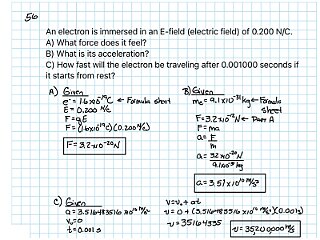 56
An electron is immersed in an E-field (electric field) of 0.200 N/C.
A) What force does it feel?
B) What is its acceleration?
C) How fast will the electron be traveling after 0.001000 seconds if
it starts from rest?
A) Given
e⁻ = 1.6x10⁻¹⁹C ← Formula sheet
E = 0.200 N/C
F = qE
F = (1.6x10⁻¹⁹C)(0.200 N/C)
F = 3.2x10⁻²⁰N
B) Given
me = 9.1x10⁻³¹kg ← Formula
sheet
F = 3.2x10⁻²⁰N ← Part A
F = ma
a = F/m
a = 3.2x10⁻²⁰N / 9.1x10⁻³¹kg
a = 3.51x10¹⁰ m/s²
C) Given
a = 3.516483516x10¹⁰ m/s²
v₀ = 0
t = 0.001 s
v = v₀ + at
v = 0 + (3.516483516x10¹⁰ m/s²)(0.001s)
v = 35164835
v = 35200000 m/s